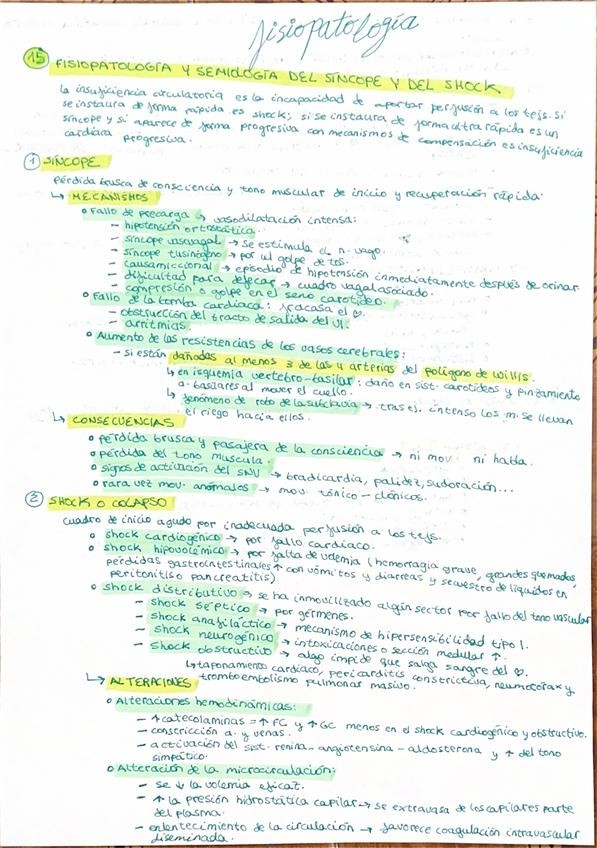 fisiopatología
15 FISIOPATOLOGÍA Y SEMIOLOGÍA DEL SÍNCOPE Y DEL SHOCK
La insuficiencia circulatoria es la incapacidad de aportar perfusión a los tejs. Si
se instaura de forma rápida es shock; si se instaura de forma ultra rápida es un
síncope y si aparece de forma progresiva con mecanismos de compensación es insuficiencia
cardiaca progresiva.
1 SÍNCOPE
Pérdida brusca de consciencia y tono muscular de inicio y recuperación rápida.
↳ MECANISMOS
• Fallo de precarga → vasodilatación intensa:
- hipotensión ortostática.
- síncope vasovagal → se estimula el n. vago.
- síncope tusígeno → por un golpe de tos.
- causamiccional → episodio de hipotensión inmediatamente después de orinar
- dificultad para defecar → cuadro vagal asociado.
- compresión o golpe en el seno carotídeo.
• Fallo de la bomba cardiaca: fracasa el ♡.
- obstrucción del tracto de salida del VI.
- arritmias.
• Aumento de las resistencias de los vasos cerebrales:
- si están dañadas al menos 3 de las 4 arterias del polígono de Willis.
↳ en isquemia vertebro-basilar: daño en sist. carotídeos y pinzamiento
a. basilares al mover el cuello.
↳ fenómeno de robo de la subclavia → tras ej. intenso los m. se llevan
el riego hacia ellos.
↳ CONSECUENCIAS
• pérdida brusca y pasajera de la consciencia → ni mov. ni habla.
• pérdida del tono muscula.
• signos de activación del SNV → bradicardia, palidez, sudoración...
• rara vez mov. anómalos → mov. tónico-clónicos.
2 SHOCK O COLAPSO
Cuadro de inicio agudo por inadecuada perfusión a los tejs.
• shock cardiogénico → por fallo cardiaco.
• shock hipovolémico → por falta de volemia (hemorragia grave, grandes quemados,
pérdidas gastrointestinales ↑ con vómitos y diarreas y secuestro de líquidos en
peritonitis o pancreatitis)
• shock distributivo → se ha inmovilizado algún sector por fallo del tono vascular
- shock séptico → por gérmenes.
- shock anafiláctico → mecanismo de hipersensibilidad tipo I.
- shock neurogénico → intoxicaciones o sección medular ↑.
- shock obstructivo → algo impide que salga sangre del ♡.
↳ taponamiento cardiaco, pericarditis constrictiva, neumotórax y
tromboembolismo pulmonar masivo.
↳ ALTERACIONES
• Alteraciones hemodinámicas:
- ↑ catecolaminas = ↑ FC y ↑ GC menos en el shock cardiogénico y obstructivo.
- constricción a. y venas.
- activación del sist. renina-angiotensina-aldosterona y ↑ del tono
simpático.
• Alteración de la microcirculación:
- se ↓ la volemia eficaz.
- ↑ la presión hidrostática capilar → se extravasa de los capilares parte
del plasma.
- enlentecimiento de la circulación → favorece coagulación intravascular
diseminada.